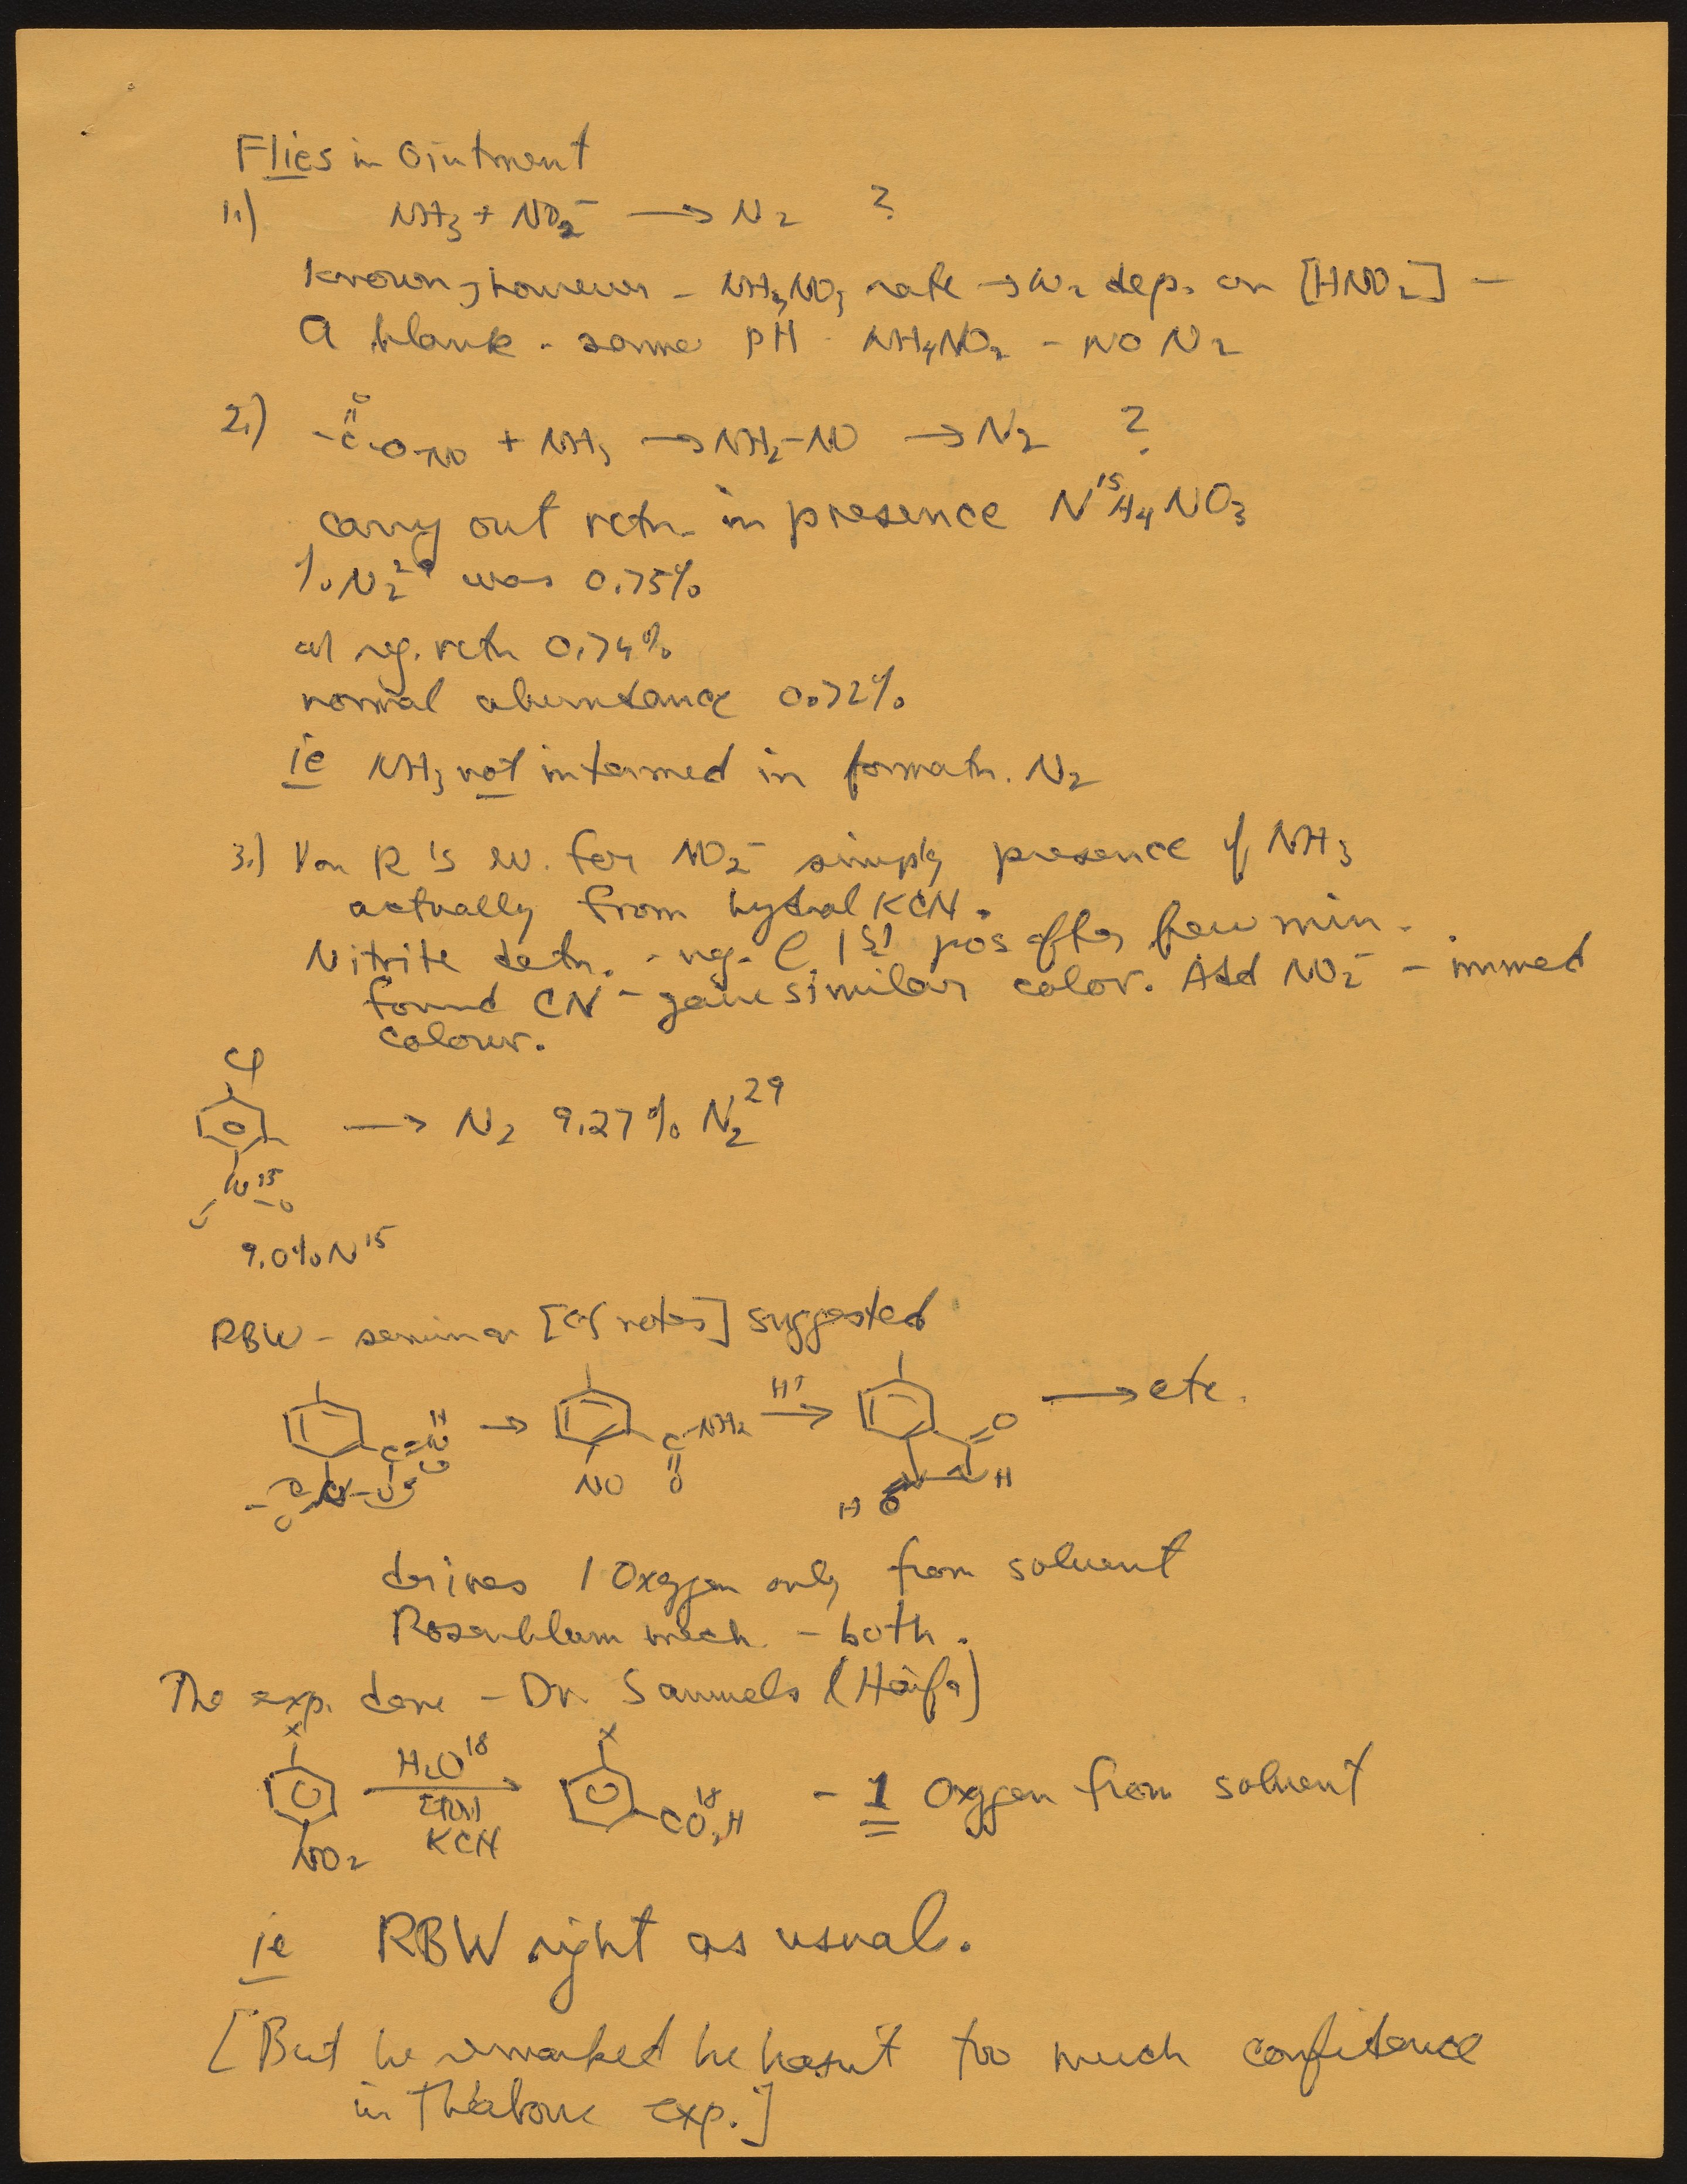 Flies in Ointment
1.) NH3 + NO2- → N2 ?
Known, however - NH4NO2 rate → N2 dep. on [HNO2] -
A blank - same pH - NH4NO2 - NO N2
2.) -C-O-NO + NH3 → NH2-NO → N2 ?
O
carry out rctn. in presence N15H4NO3
% N2 29 was 0.75%
reg. rctn 0.74%
normal abundance 0.72%
ie NH3 not intermed in formatn. N2
3.) Von R's ev. for NO2- simply presence of NH3
actually from hydrol KCN.
Nitrite detn. - neg. @ 1st pos after few min.
found CN- gave similar color. Add NO2- - immed
colour.
Cl
→ N2 9.27% N2 29
N15
O O
9.0% N15
RBW - seminar [cf notes] suggested
→ NO C-NH2 O H+ → O N H HO → etc.
derives 1 Oxygen only from solvent
Rosenblum mech. - both.
The exp. done - Dr. Samuels (Haifa)
X NO2 H2O18 EtOH KCN → X CO18 2H - 1 Oxygen from solvent
ie RBW right as usual.
[But he remarked he hasn't too much confidence
in the above exp.]